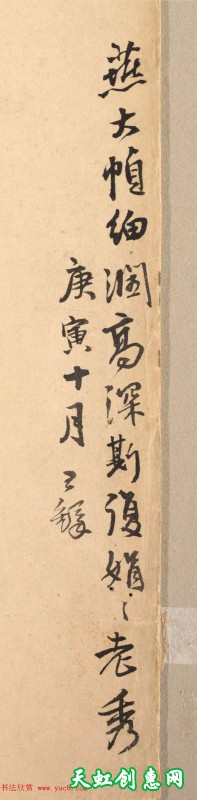 燕大幀細潤高深斯復娟〻老秀
庚寅十月工鐸
书法欣赏 www.yac8.com
天虹创意网